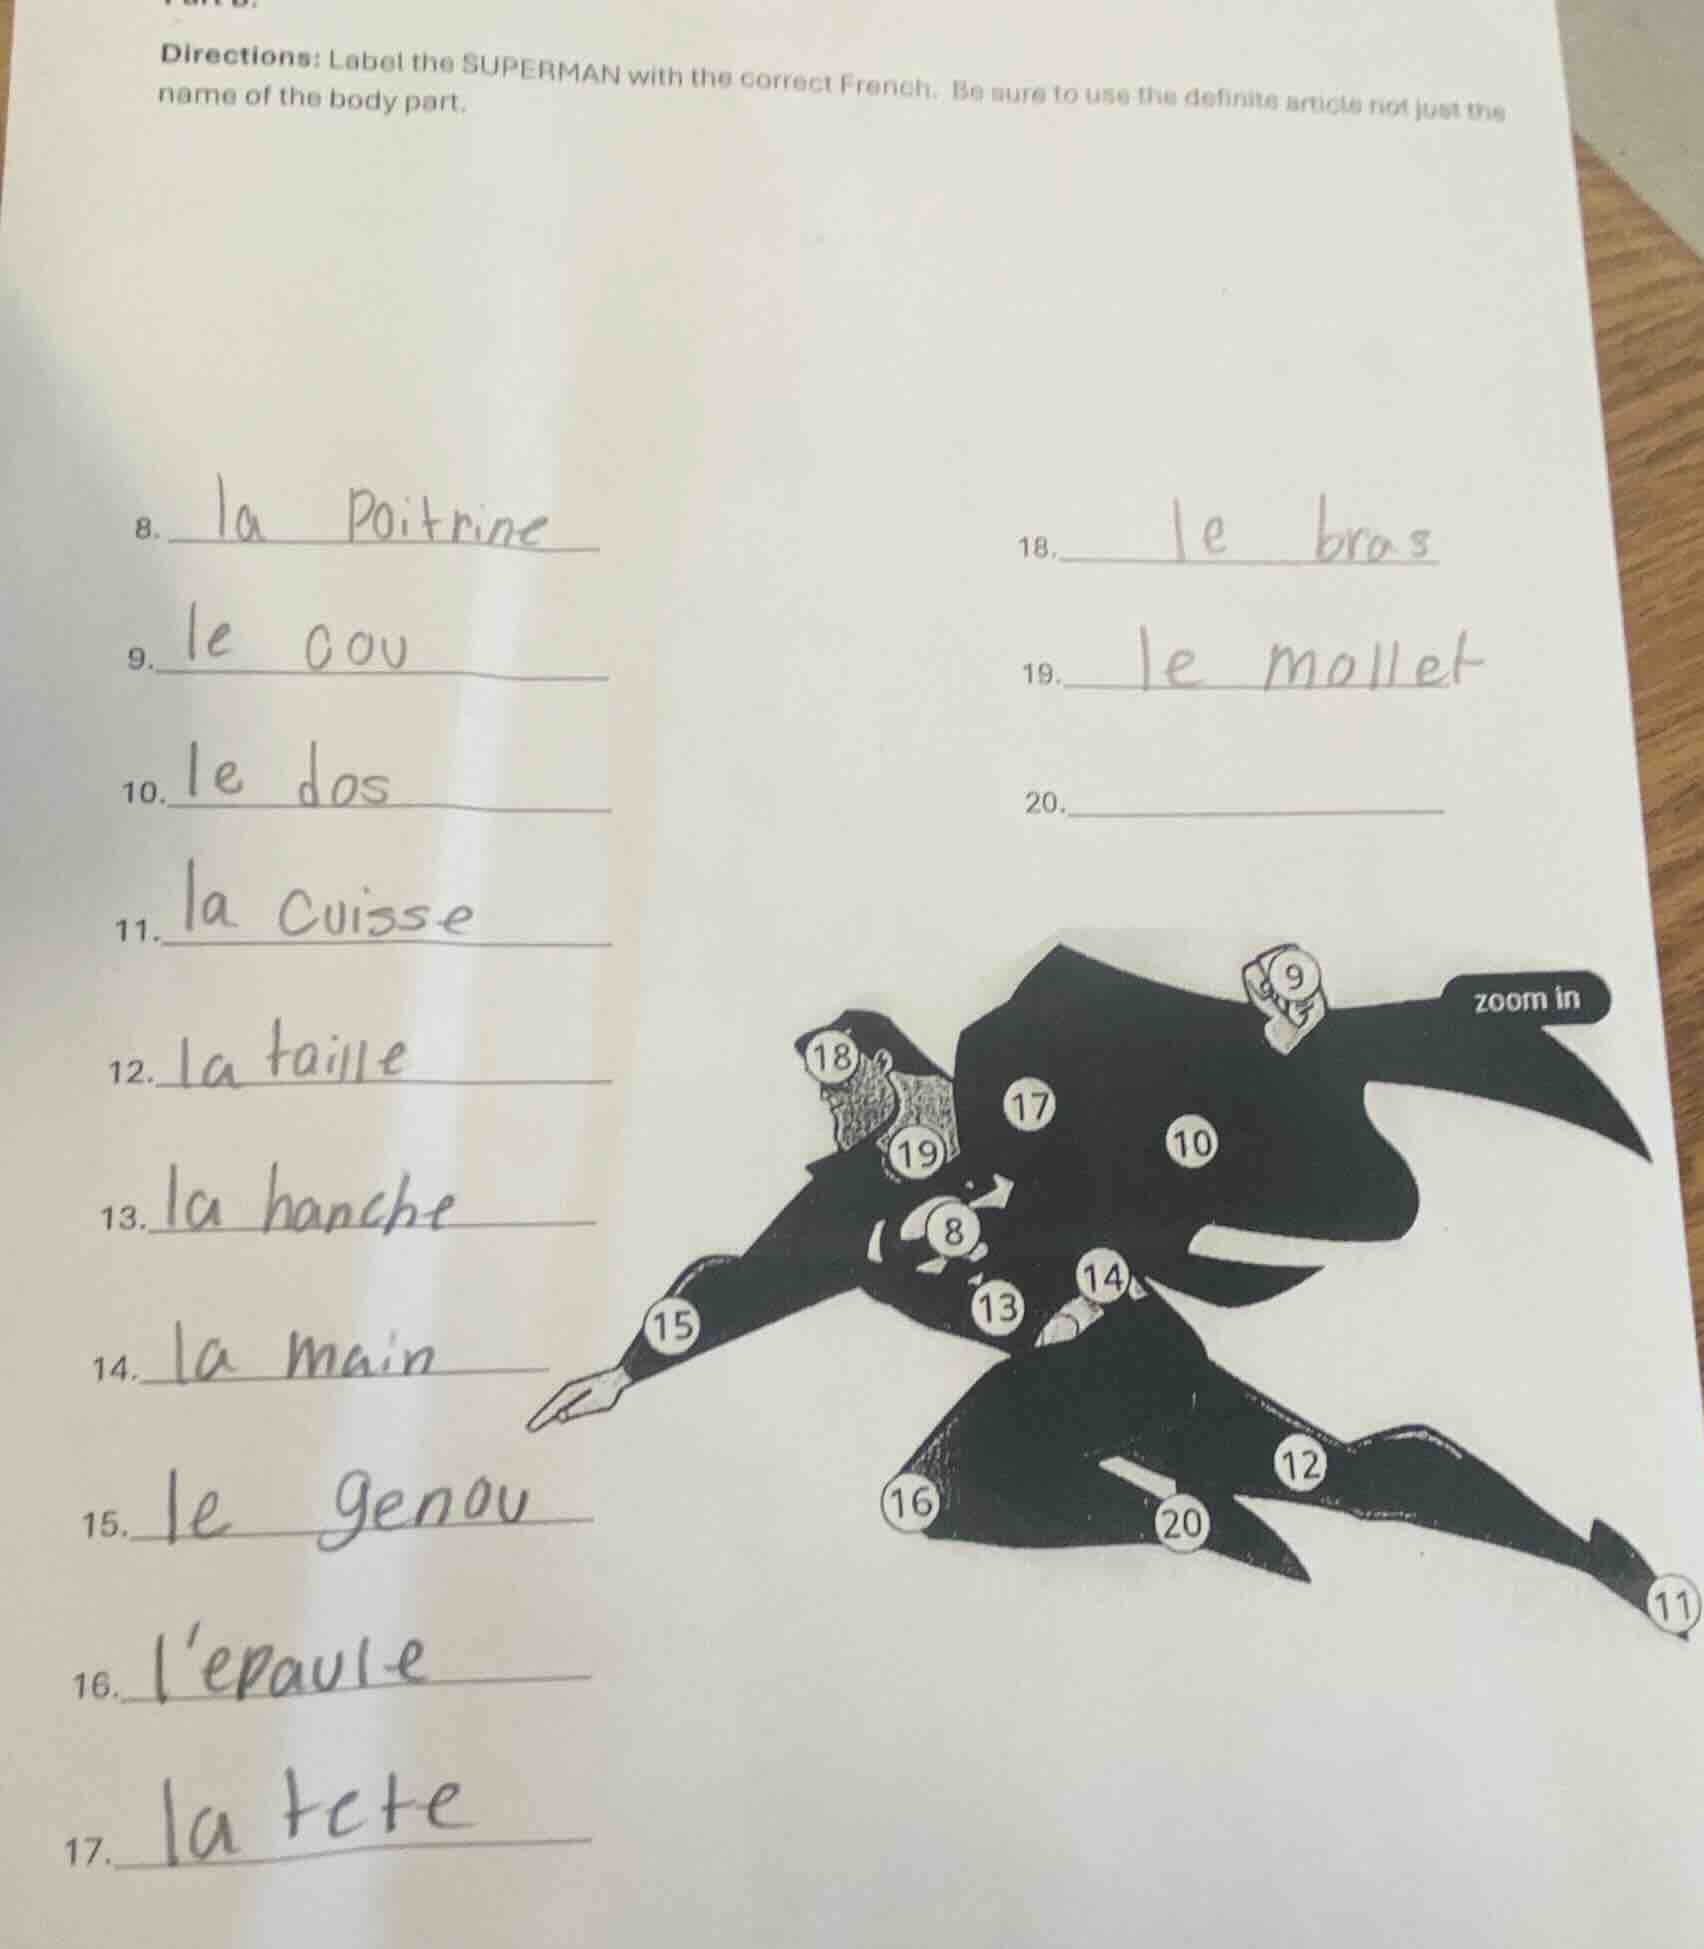 Directions: Label the SUPERMAN with the correct French. Be sure to use the definite article not just the
name of the body part.
8. la poitrine
9. le cou
10. le dos
11. la cuisse
12. la taille
13. la hanche
14. la main
15. le genou
16. l'epaule
17. la tete
18. le bras
19. le mollet
20.
zoom in
9
18
17
10
19
8
14
13
15
12
16
20
11